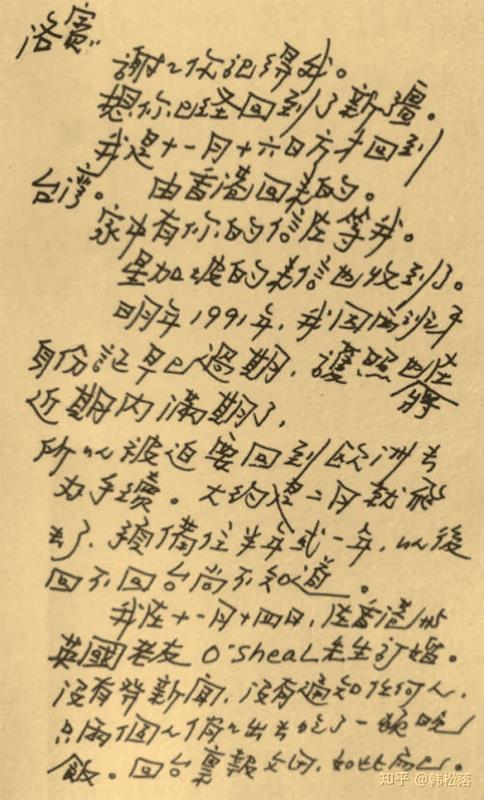 洛賓：
謝々你記得我。
想你已經回到了新疆。
我是十一月十六日方才回到
台灣。 由香港回來的。
家中有你的信在等我。
星加坡的來信也收到了。
明年1991年，我因西班牙
身份証早已過期，護照也將在
近期内滿期了，
所以被迫要回到歐洲去
办手續。大約是二月就飛
去了，預備住半年或一年，以後
回不回台尚不知道。
我在十一月十四日，在香港與
英國老友 O'sheaL先生訂婚。
沒有發新聞，沒有通知任何人，
只兩個人 出去吃了一頓晚
飯。回台稟報父母，如此而已。
知乎 @韩松落